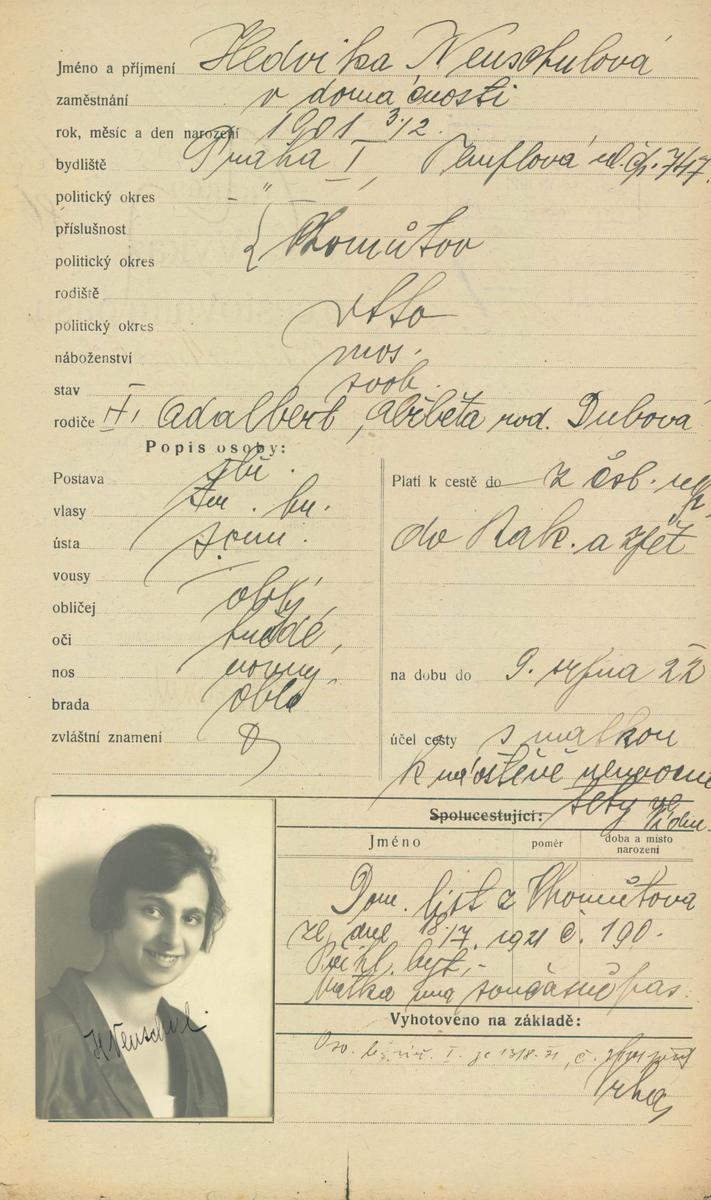 Jméno a příjmení Hedvika Neuschulová
zaměstnání v domácnosti
rok, měsíc a den narození 1901 3/2.
bydliště Praha I, Templová ul. čp. 747
politický okres - " -
příslušnost
politický okres Chomútov
rodiště
politický okres dtto
náboženství mos.
stav svob.
rodiče Adalbert, Alžběta roz. Dubová
Popis osoby:
Postava
vlasy tm. hn.
ústa soum.
vousy -
obličej oblý,
oči hnědé,
nos rovný,
brada oblá
zvláštní znamení
Platí k cestě do z čsl. rep.
do Rak. a zpět
na dobu do 9. srpna 22
účel cesty s matkou
k návštěvě nemocné
tety ve Vídni.
Spolucestující:
Jméno poměr doba a místo narození
Dom. list z Chomútova
ze dne 18/7. 1921 č. 190.
Přihl. byt. -
Matka má současně pas.
Vyhotoveno na základě:
H Neuschul.